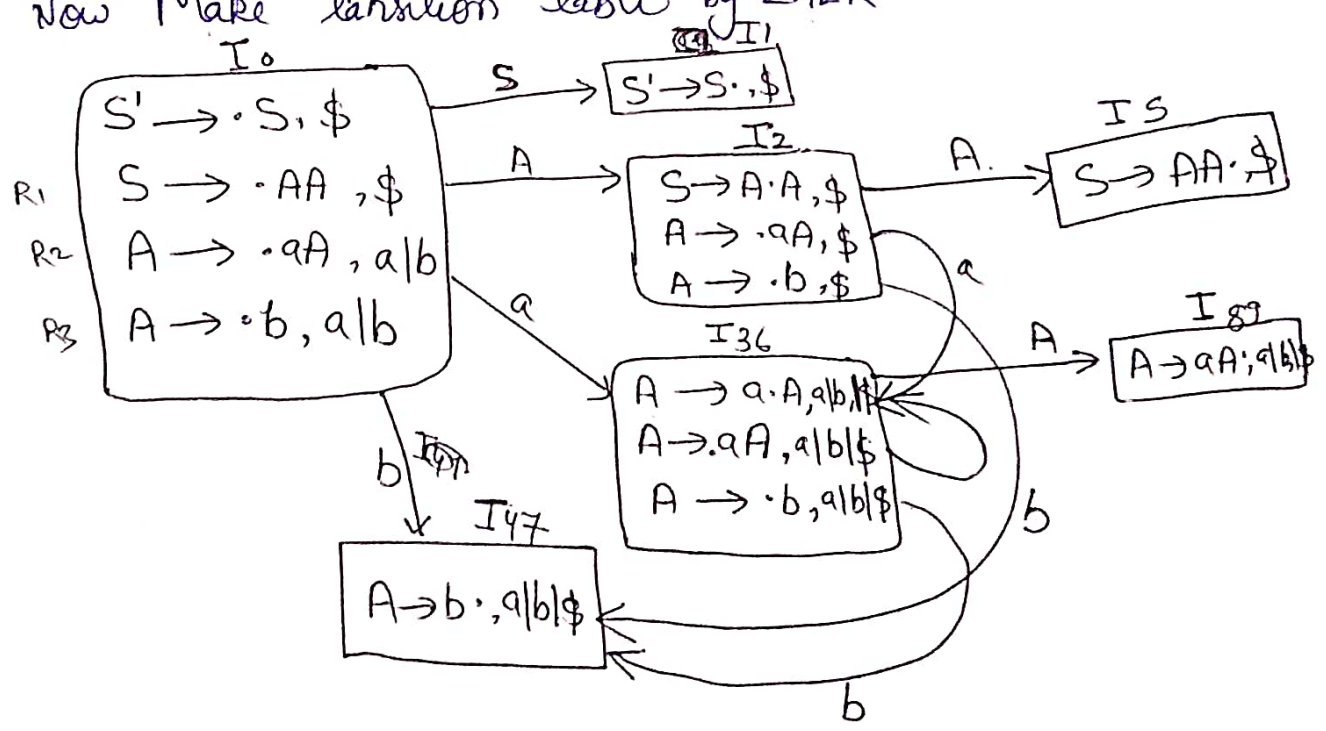 Now Make transition table by LALR
I0
S' → ·S, $
R1 S → ·AA , $
R2 A → ·aA , a|b
R3 A → ·b, a|b
S
I1
S' → S·, $
A
I2
S → A·A, $
A → ·aA, $
A → ·b, $
A.
I5
S → AA·, $
a
a
b
I36
A → a·A, a|b|$
A → .aA, a|b|$
A → ·b, a|b|$
A
I89
A → aA·, a|b|$
b
I47
A → b·, a|b|$
b